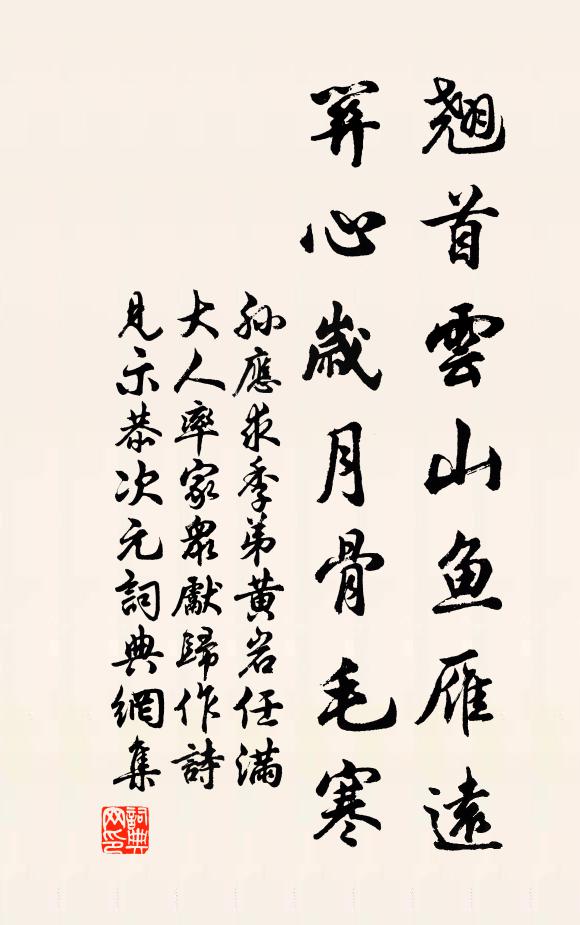 翹首雲山魚雁遠
心歲月骨毛寒
孫應求季弟黃岩任滿
大人率家眾獻歸作詩
見示恭次元詞典網集
詞典
网印